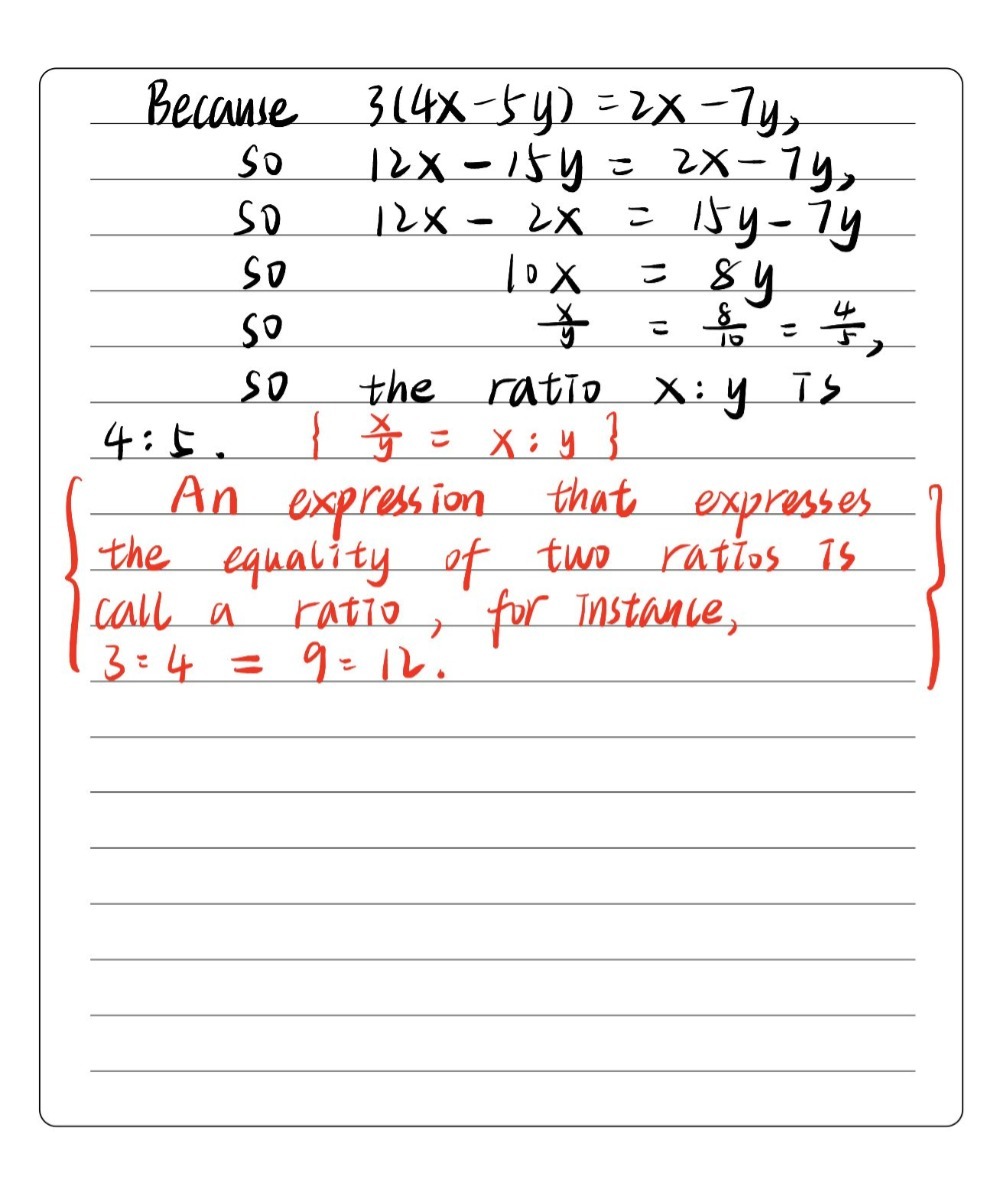 Because 3(4x-5y) = 2x-7y,
so 12x - 15y = 2x-7y,
so 12x - 2x = 15y-7y
so 10x = 8y
so x/y = 8/10 = 4/5,
so the ratio x:y is
4:5. { x/y = x:y }
{ An expression that expresses
the equality of two ratios is
call a ratio, for instance,
3:4 = 9:12. }